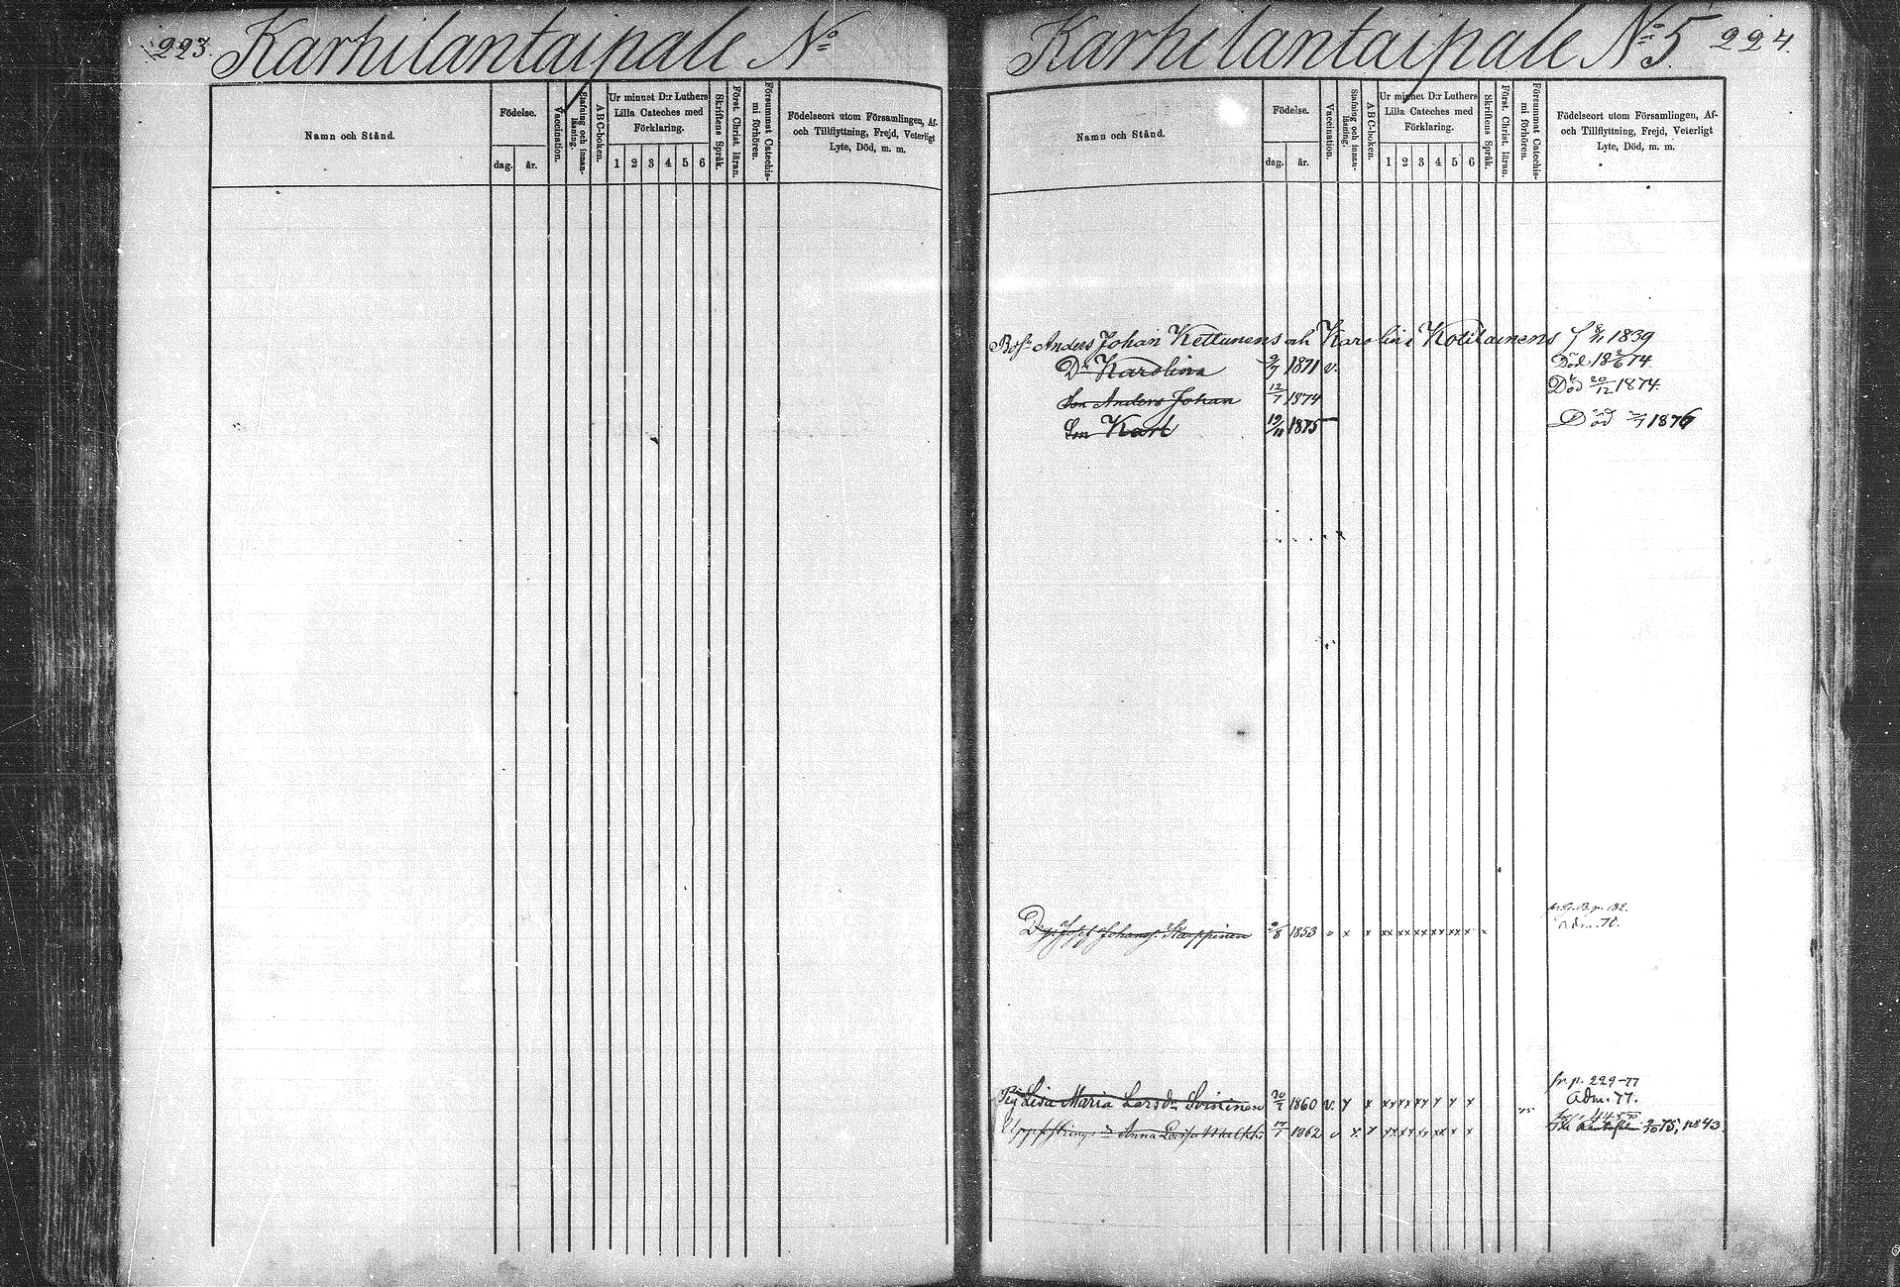 223. Karhilantaipale No
Namn och Stånd.
Födelse.
dag.
år.
Vaccination.
Stafning och innan-
läsning.
ABC-boken.
Ur minnet D:r Luthers
Lilla Cateches med
Förklaring.
1 2 3 4 5 6
Skriftens Språk.
Först. Christ. läran.
Försummat Catechis-
mi förhören.
Födelseort utom Församlingen, Af-
och Tillflyttning, Frejd, Veterligt
Lyte, Död, m. m.
Karhilantaipale No 5. 224.
Namn och Stånd.
Födelse.
dag.
år.
Vaccination.
Stafning och innan-
läsning.
ABC-boken.
Ur minnet D:r Luthers
Lilla Cateches med
Förklaring.
1 2 3 4 5 6
Skriftens Språk.
Först. Christ. läran.
Försummat Catechis-
mi förhören.
Födelseort utom Församlingen, Af-
och Tillflyttning, Frejd, Veterligt
Lyte, Död, m. m.
Anders Johan Kettunens och Karolina Kotilainens 1839
Dr Karolina 1871 v. Död 74
Son Anders Johan 12/7 1874 Död 20/12 1874
Son Karl 19/11 1875 Död 1876
Johans. 1853 v x x xx xx xx xx x x
adm.
Pig Lisa Maria Larsdr 30/7 1860 v. y x xx xx xx y y x fr. p. 229-77
adm. 77.
Anna Lovisa 17/7 1862 v x y xx xx xx xx x x